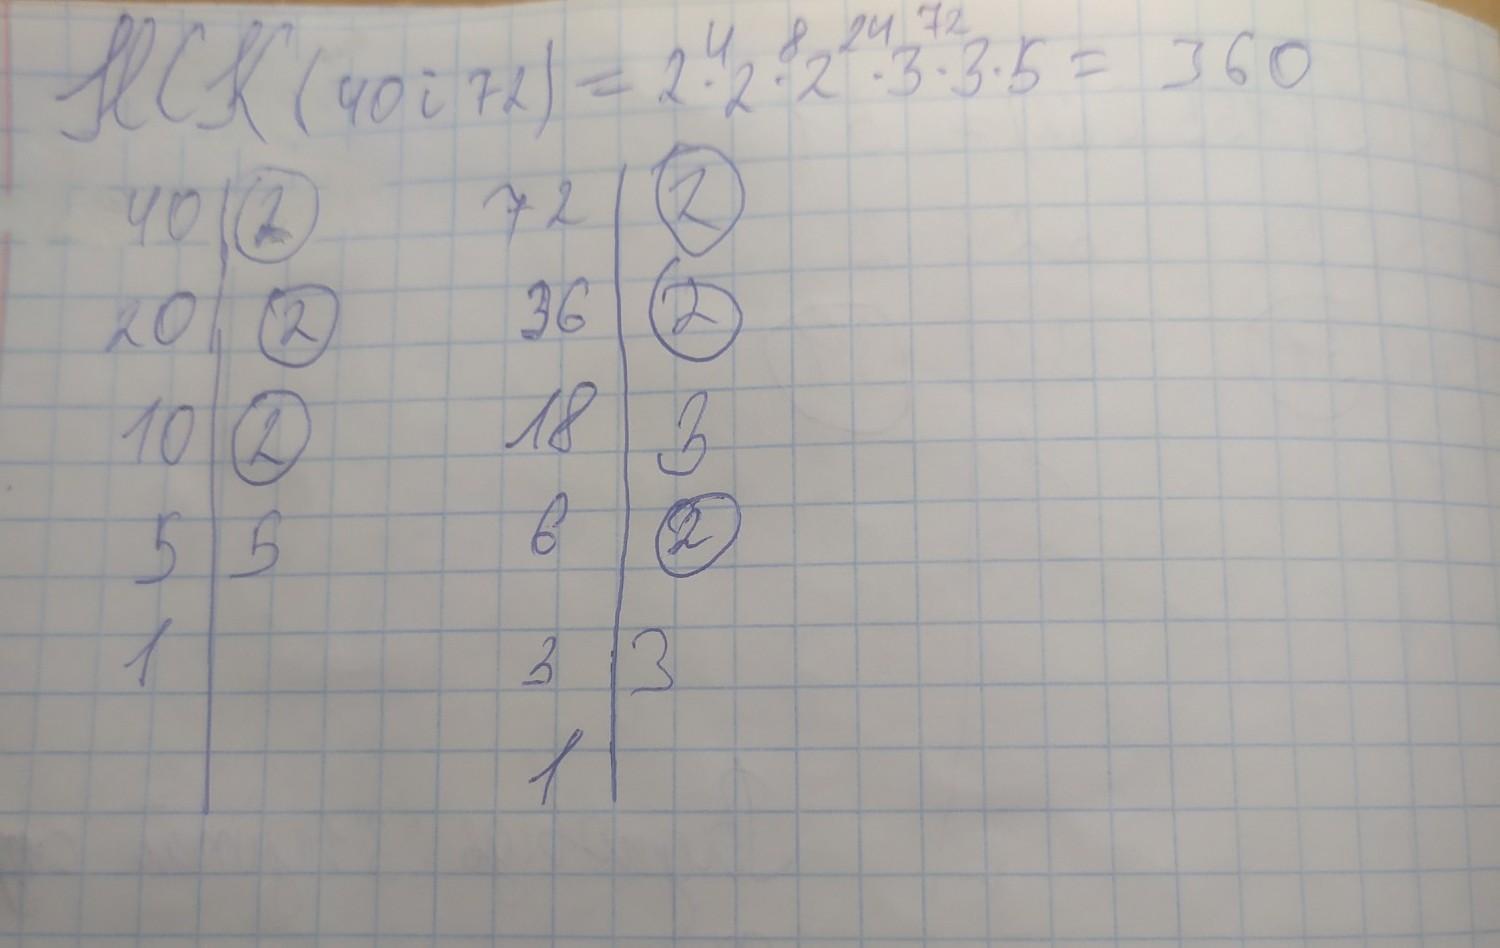 НСК (40 і 72) = 2·2·2·3·3·5 = 360
4 8 24 72
40 | 2 72 | 2
20 | 2 36 | 2
10 | 2 18 | 3
5 | 5 6 | 2
1 | 3 | 3
1 |